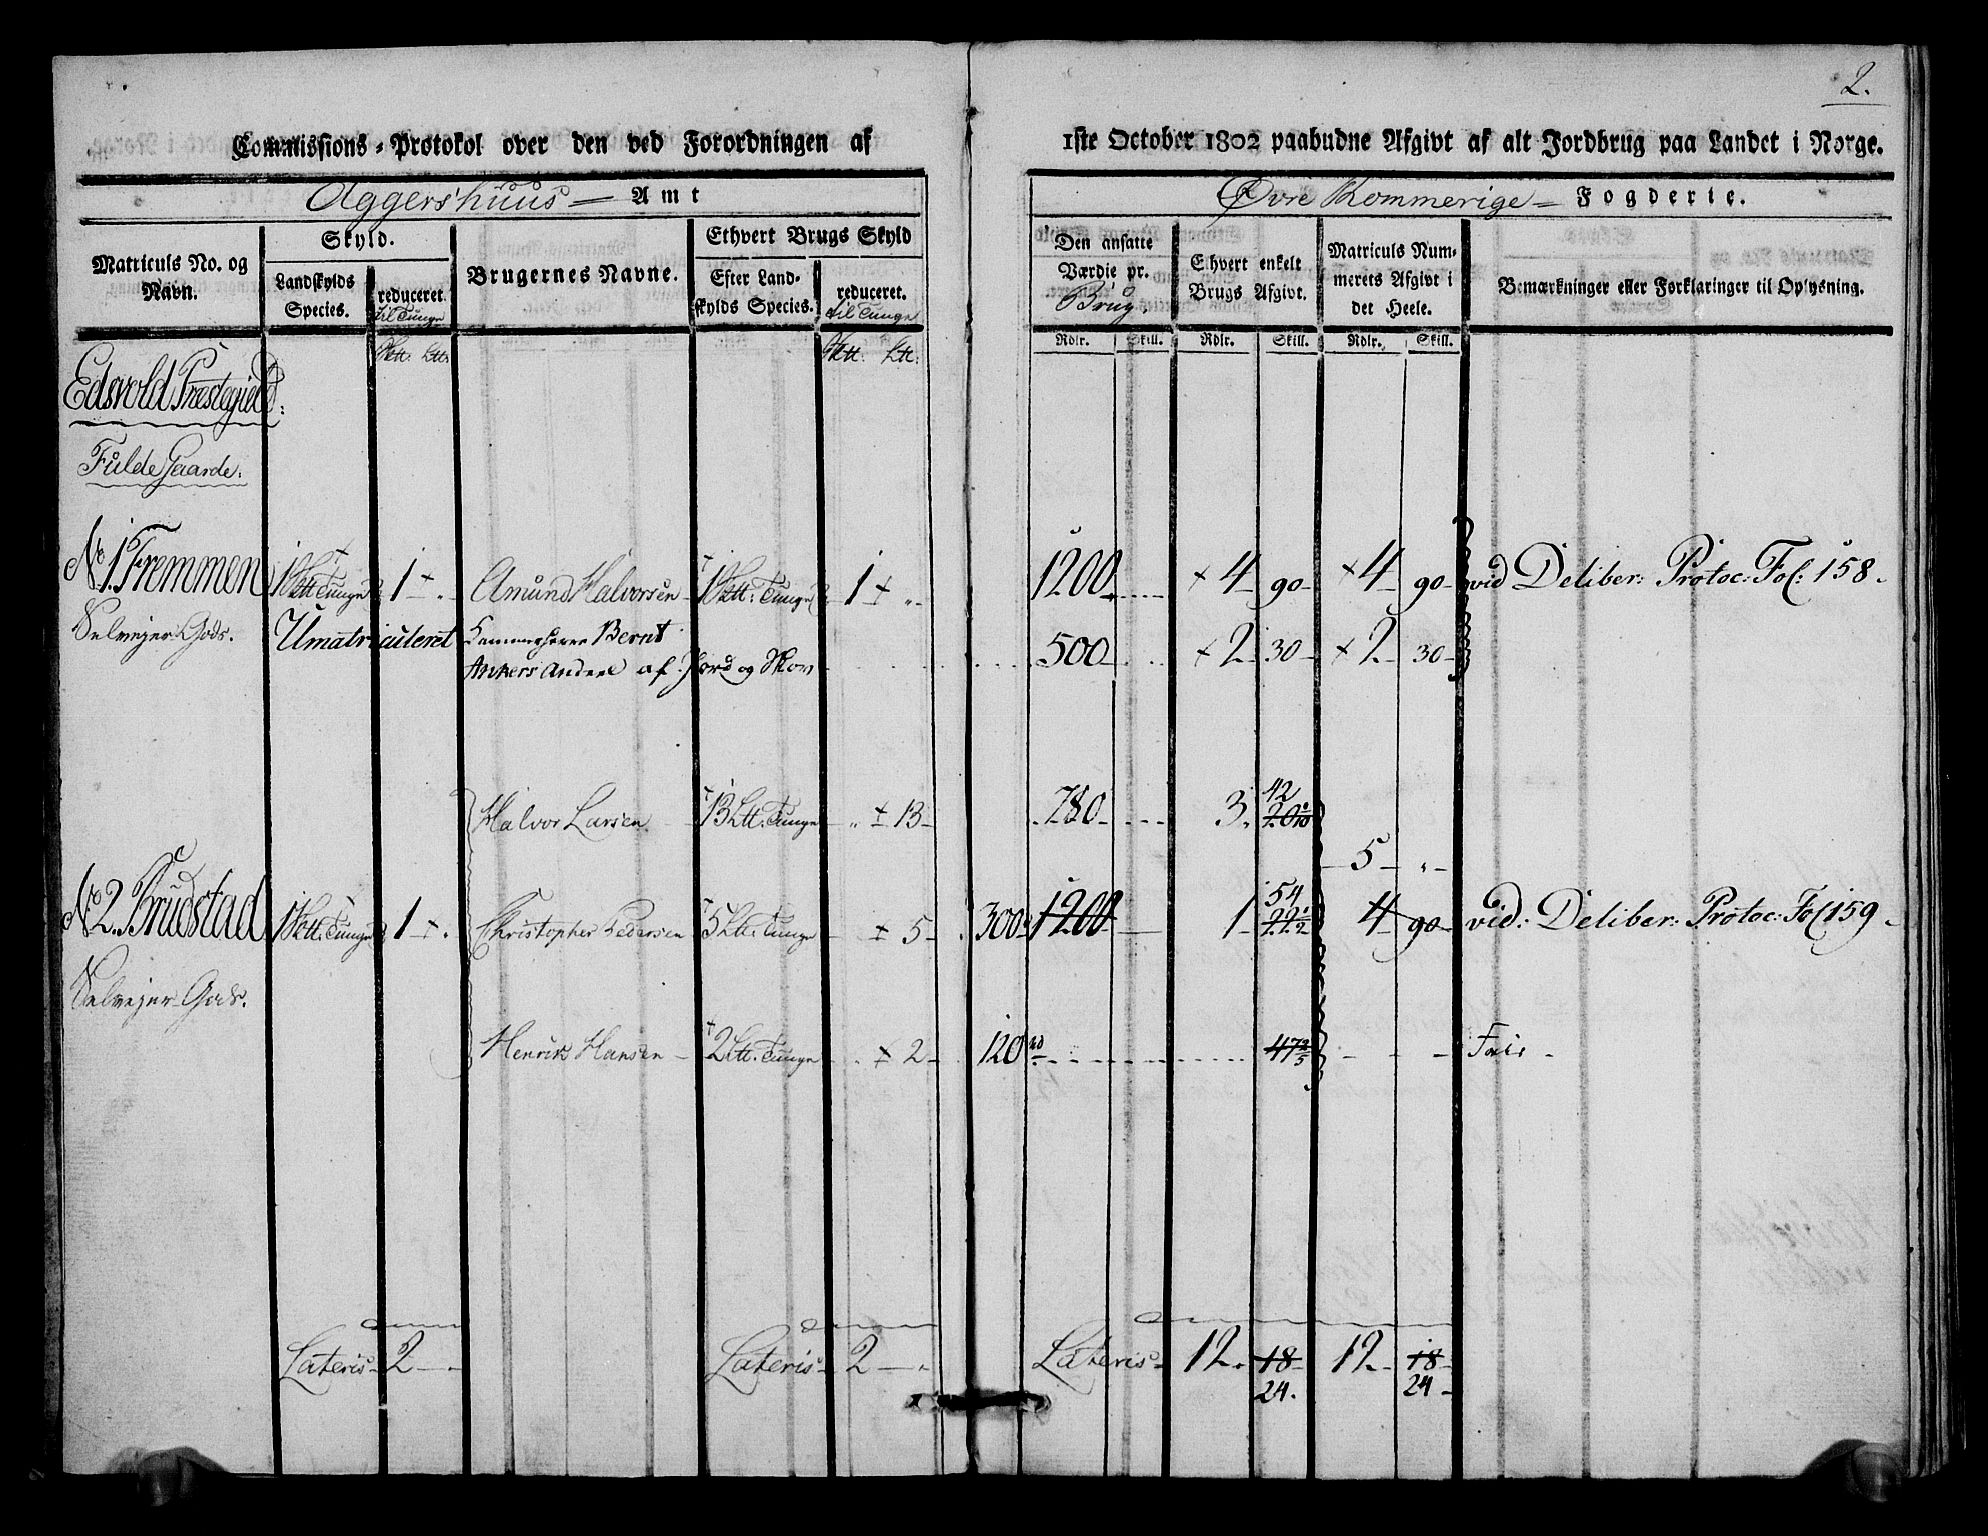 2.
Commissions-Protokol over den ved Forordningen af 1ste October 1802 paabudne Afgivt af alt Jordbrug paa Landet i Norge.
Aggershuus — Amt
Øvre Rommerige — Fogderie.
Matriculs No. og Navn.
Skyld.
Landskylds Species.
reduceret. til Tunge
Brugernes Navne.
Ethvert Brugs Skyld
Efter Landskylds Species.
reduceret. til Tunge
Den ansatte Værdie pr. Brug.
Ethvert enkelt Brugs Afgivt.
Matriculs Nummerets Afgivt i det Heele.
Bemærkninger eller Forklaringer til Oplysning.
Rdlr. Skill. Rdlr. Skill. Rdlr. Skill.
Edsvold Præstegield:
Fulde Gaarde:
No. 1. Fremmen 1 Tunge 1 Amund Halvorsen 1 Tunge 1 1200 4 90 4 90 vid Deliber: Protoc: Fol: 158
Selvejer Gods. Umatriculeret Kammerherre Bernt 500 2 30 2 30
Ankers Andeel af Jord og Skov
Halvor Larsen 13 Ltt: Tunge 13 780 3 42
5
54
No. 2. Brudstad 1 Tunge 1 Christopher Pedersen 5 Ltt: Tunge 5 300 1200 1 4 90 vid: Deliber: Protoc: Fol 159
Selvejer Gods.
Henrik Hansen 2 Ltt: Tunge 2 120
Lateris 2 Lateris 2 Lateris 12 18 12 18
24. 24